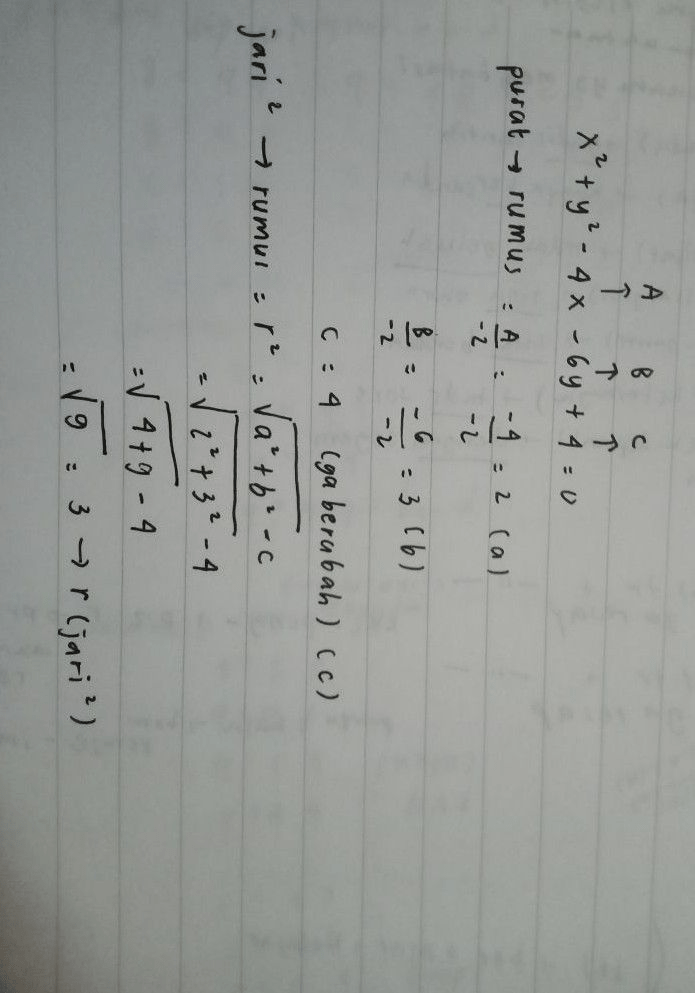 A B C
↑ ↑ ↑
x² + y² - 4x - 6y + 4 = 0
pusat → rumus : A/-2 = -4/-2 = 2 (a)
B/-2 = -6/-2 = 3 (b)
C = 4 (ga berubah) (c)
jari² → rumus = r² = √a² + b² - c
= √2² + 3² - 4
= √4 + 9 - 4
= √9 = 3 → r (jari²)